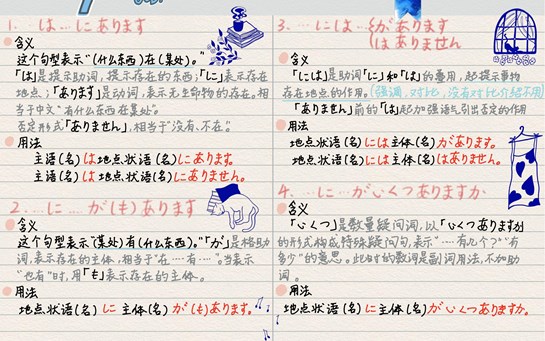 1. …は…にあります
含义
这个句型表示“(什么东西)在(某处)。”
「は」是提示助词，提示存在的东西;「に」表示存在
地点;「あります」是动词，表示无生命物的存在。相
当于中文“有什么东西在某处”。
否定形式「ありません」，相当于“没有、不在”。
用法
主语(名)は地点状语(名)にあります。
主语(名)は地点状语(名)にありません。
2. …に…が(も)あります
含义
这个句型表示“(某处)有(什么东西)。”「が」是格助
词，表示存在的主体，相当于“在…有…”。当表示
“也有”时，用「も」表示存在的主体。
用法
地点状语(名)に主体(名)が(も)あります。
3. …には…{があります
はありません
含义
「には」是助词「に」和「は」的重用，起提示事物
存在地点的作用。(强调，对比，没有对比介绍不用)
「ありません」前的「は」起加强语气引出否定的作用
用法
地点状语(名)には主体(名)があります。
地点状语(名)には主体(名)はありません。
4. …に…がいくつありますか
含义
「いくつ」是数量疑问词，以「いくつありますか」
的形式构成特殊疑问句，表示“…有几个?”“有
多少”的意思。此时的数词是副词用法，不加助
词。
用法
地点状语(名)に主体(名)がいくつありますか。